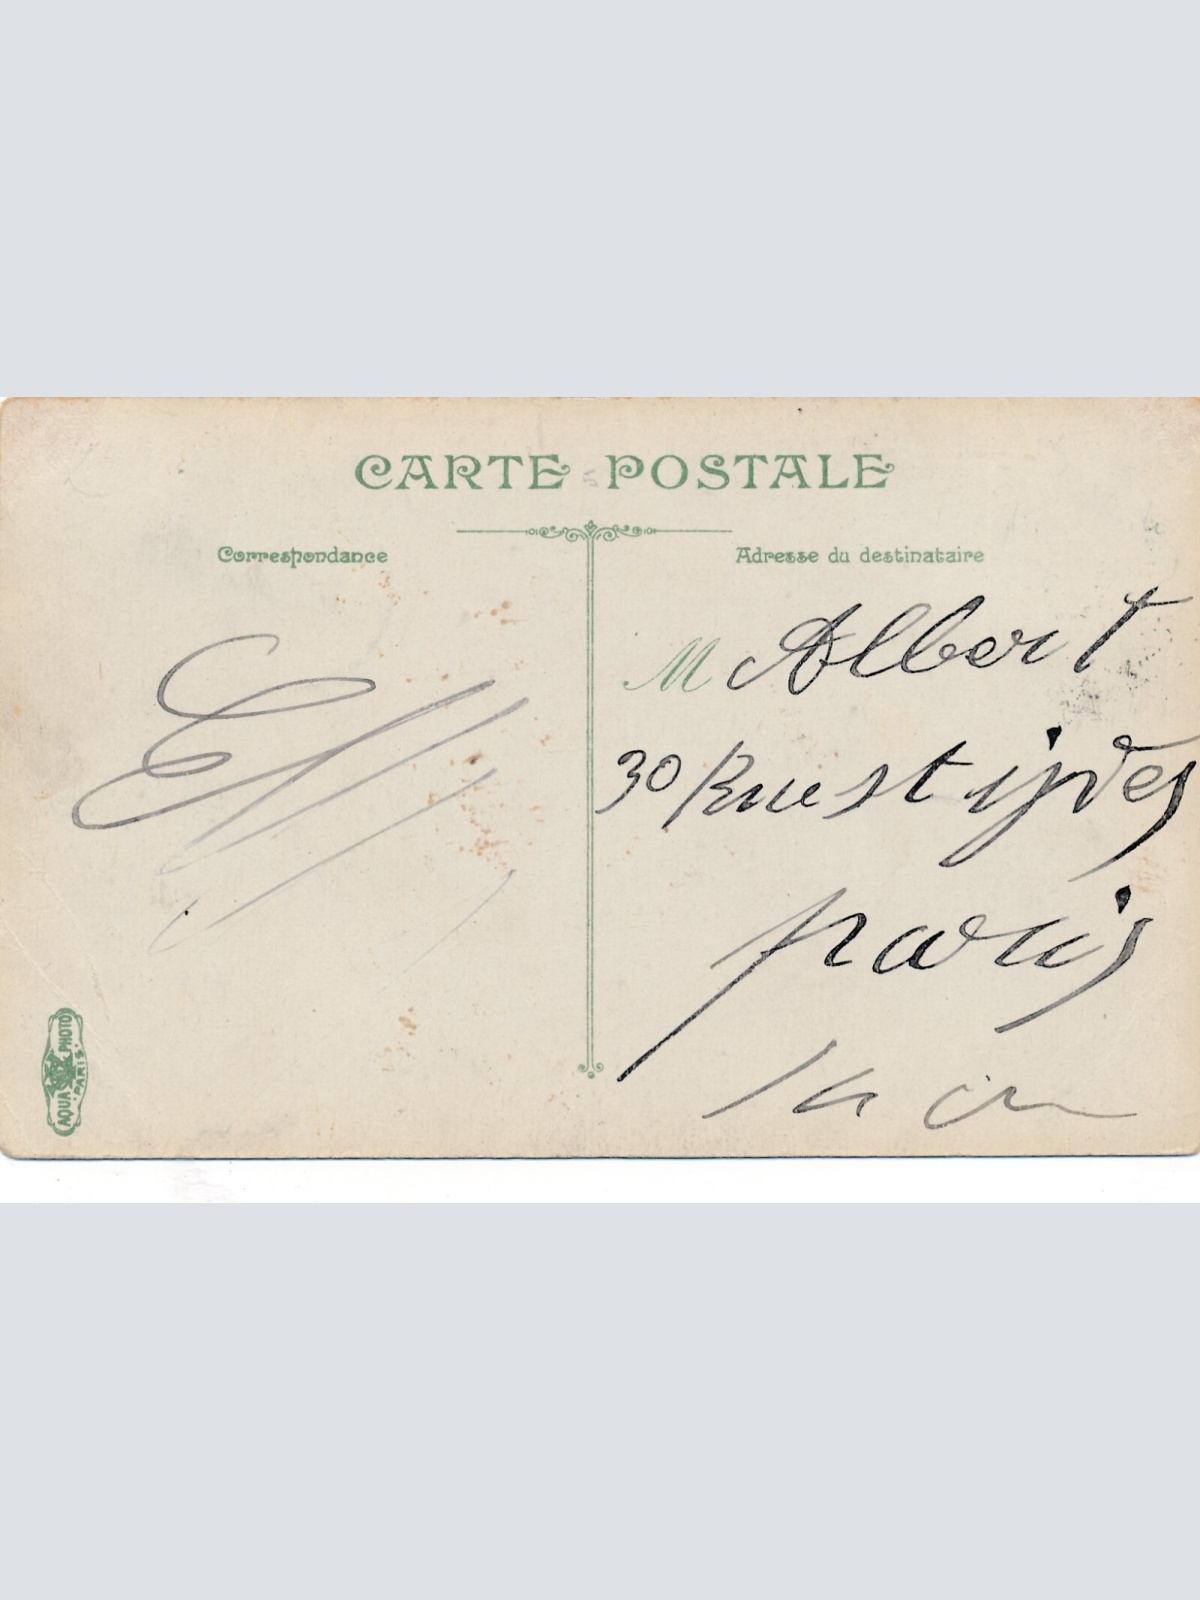 CARTE POSTALE
Correspondance
Adresse du destinataire
M Albert
30 Rue st yves
paris
AQUA PHOTO
PARIS